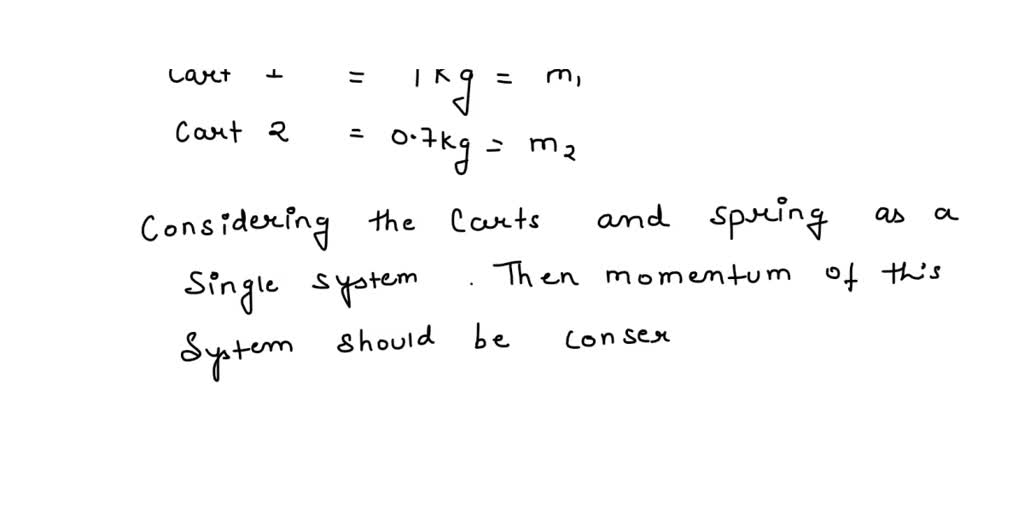 Cart 1 = 1 kg = m1
Cart 2 = 0.7kg = m2
Considering the Carts and spring as a
Single system . Then momentum of this
System should be conser